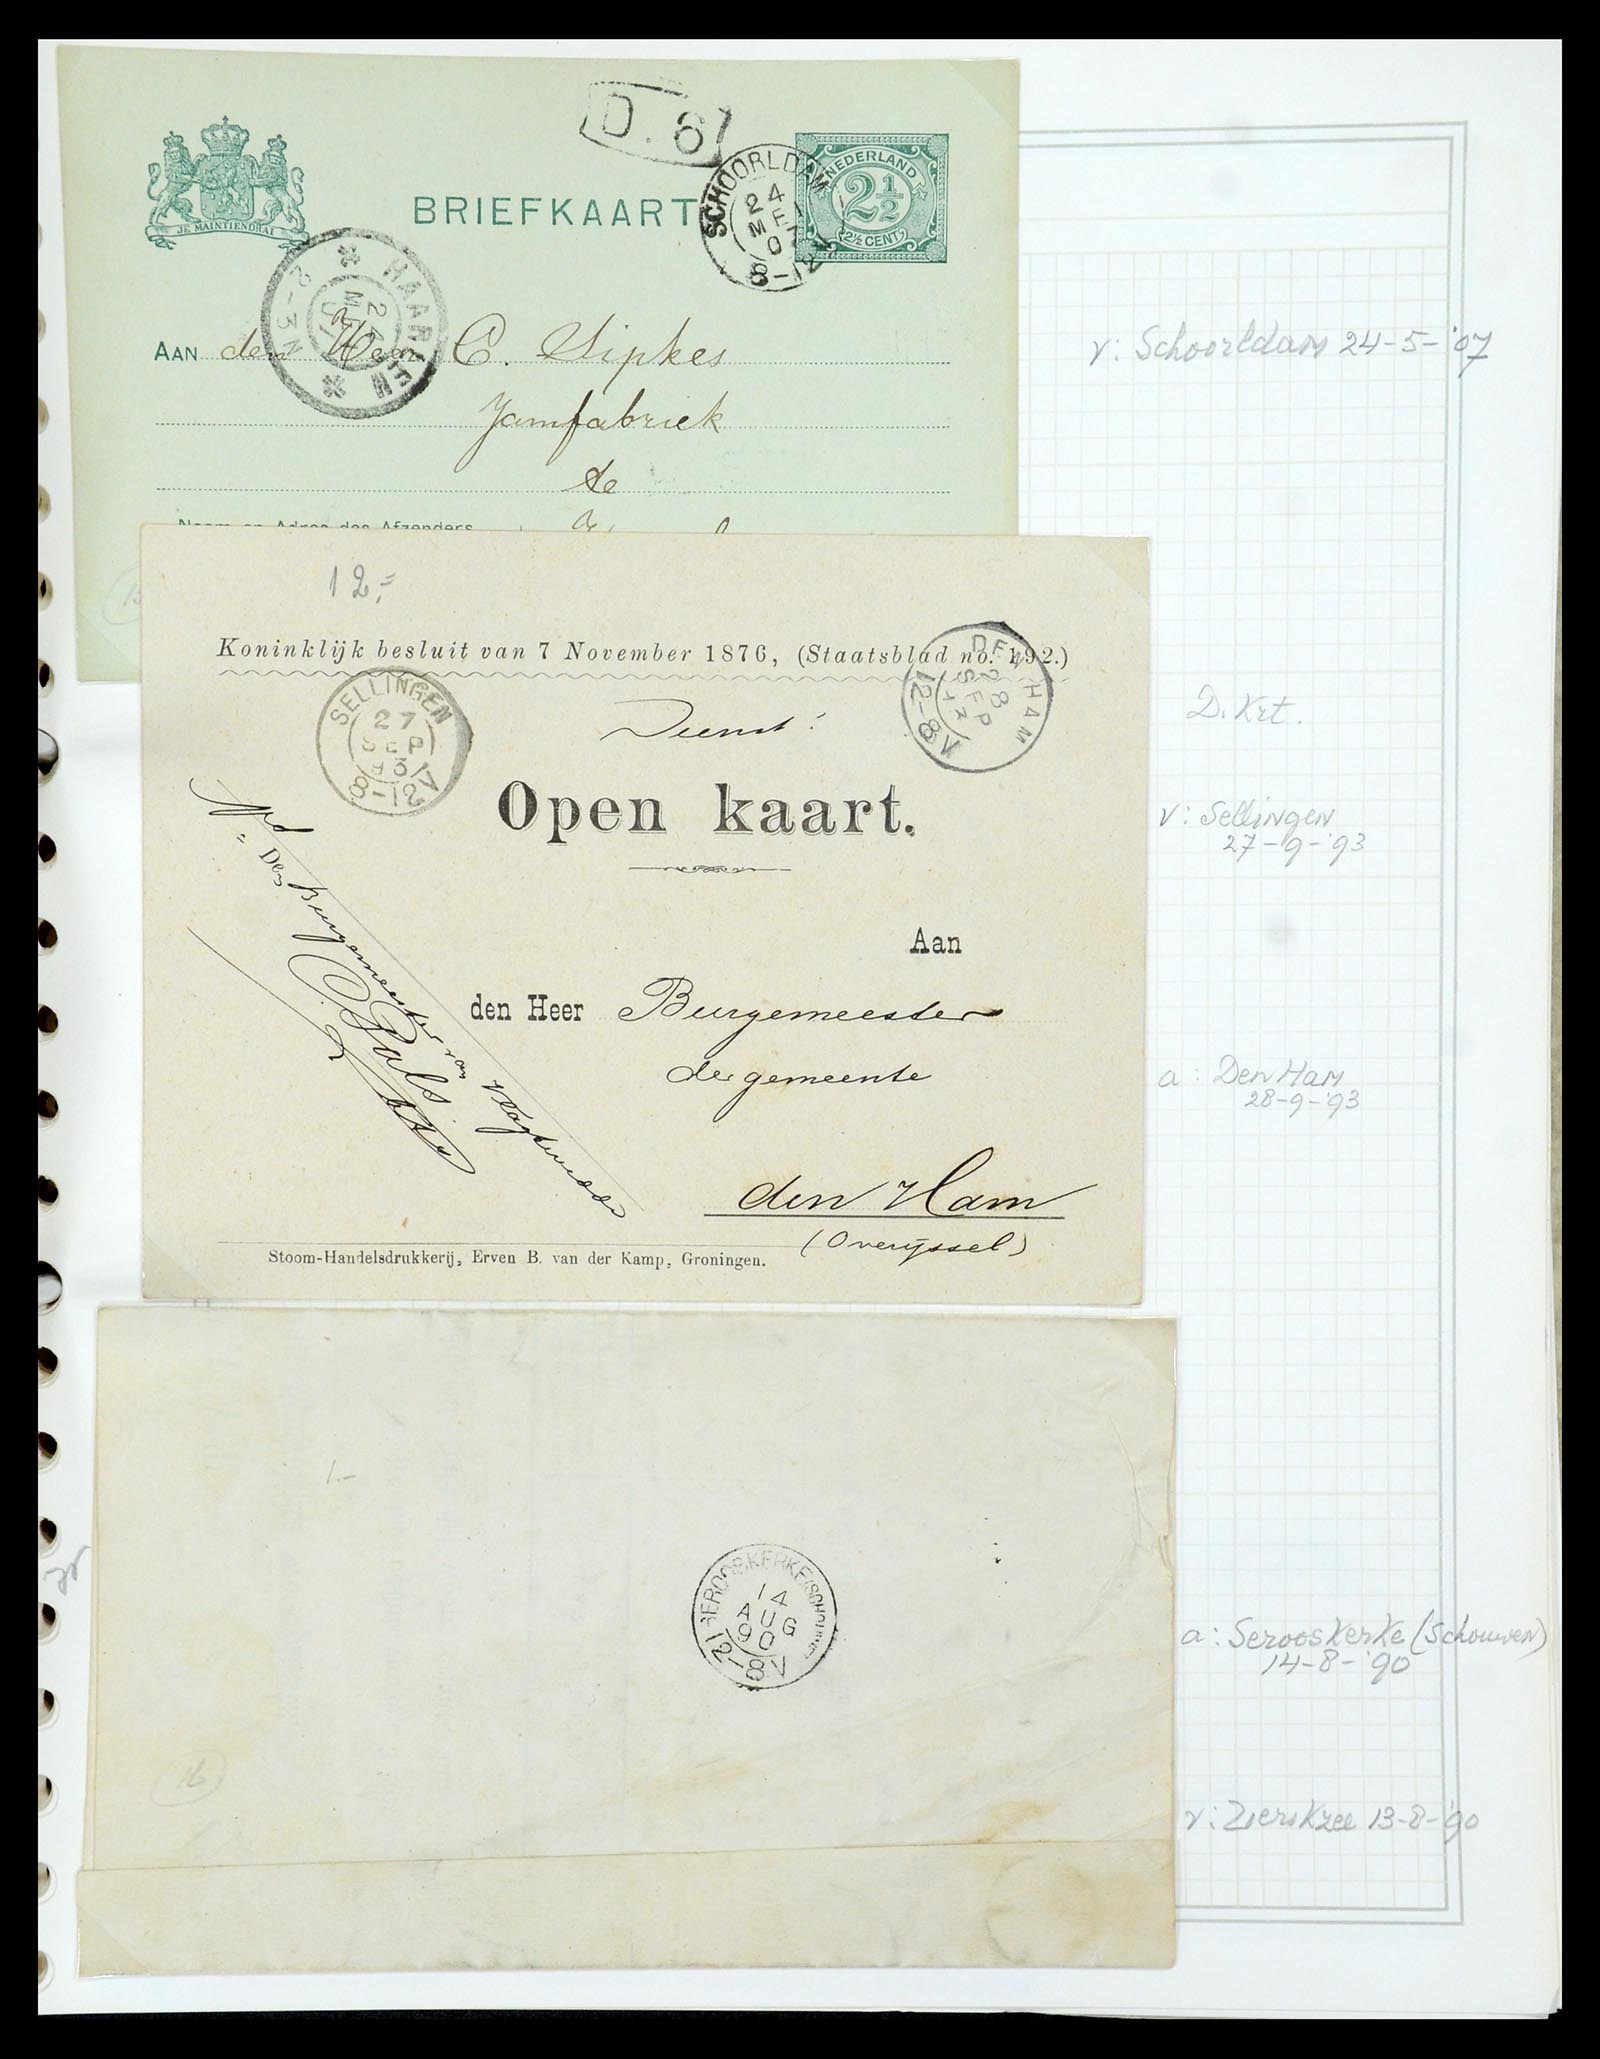 D. 6
BRIEFKAART
JE MAINTIENDRAI
SCHOORLDAM
24
MEI
8-12
NEDERLAND
2½
(2½ CENT)
HAARLEM
2-3N
AAN den Heer C. Sipkes
Jamfabriek
te
Naam en Adres des Afzenders
v: Schoorldam 24-5-'07
12,=
Koninklijk besluit van 7 November 1876, (Staatsblad no. 192.)
SELLINGEN
27
SEP
93
8-12V
DEN HAM
28
SEP
93
12-8V
Dienst.
Open kaart.
Aan
den Heer Burgemeester
der gemeente
den Ham
(Overijssel)
De Burgemeester van Vlagtwedde
Stoom-Handelsdrukkerij, Erven B. van der Kamp, Groningen.
D. Krt.
v: Sellingen
27-9-'93
a: Den Ham
28-9-'93
1.-
SEROOSKERKE (SCHOUWEN)
14
AUG
90
12-8V
16
a: Serooskerke (Schouwen)
14-8-'90
v: Zierikzee 13-8-'90